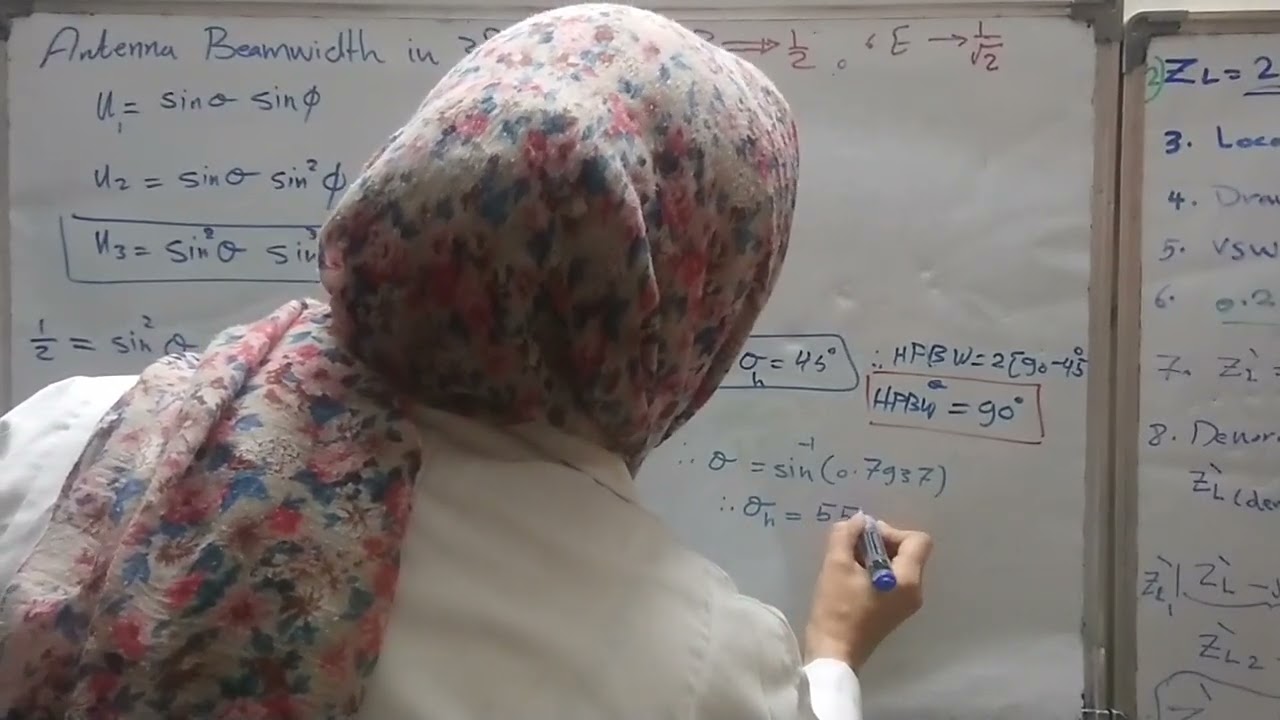 Antenna Beamwidth in ⇒ 1/2 . , E → 1/√2
U₁ = sinθ sinϕ
U₂ = sinθ sin²ϕ
U₃ = sin²θ sin³
1/2 = sin²θ
θₕ = 45°
∴ HPBW = 2[90-45°
HPBW = 90°
∴ θ = sin⁻¹(0.7937)
∴ θₕ = 55
2) ZL = 2
3.
4.
5. VSW
6. 0.2
7. ZL` =
8.
ZL`
ZL` ZL` -
ZL2`